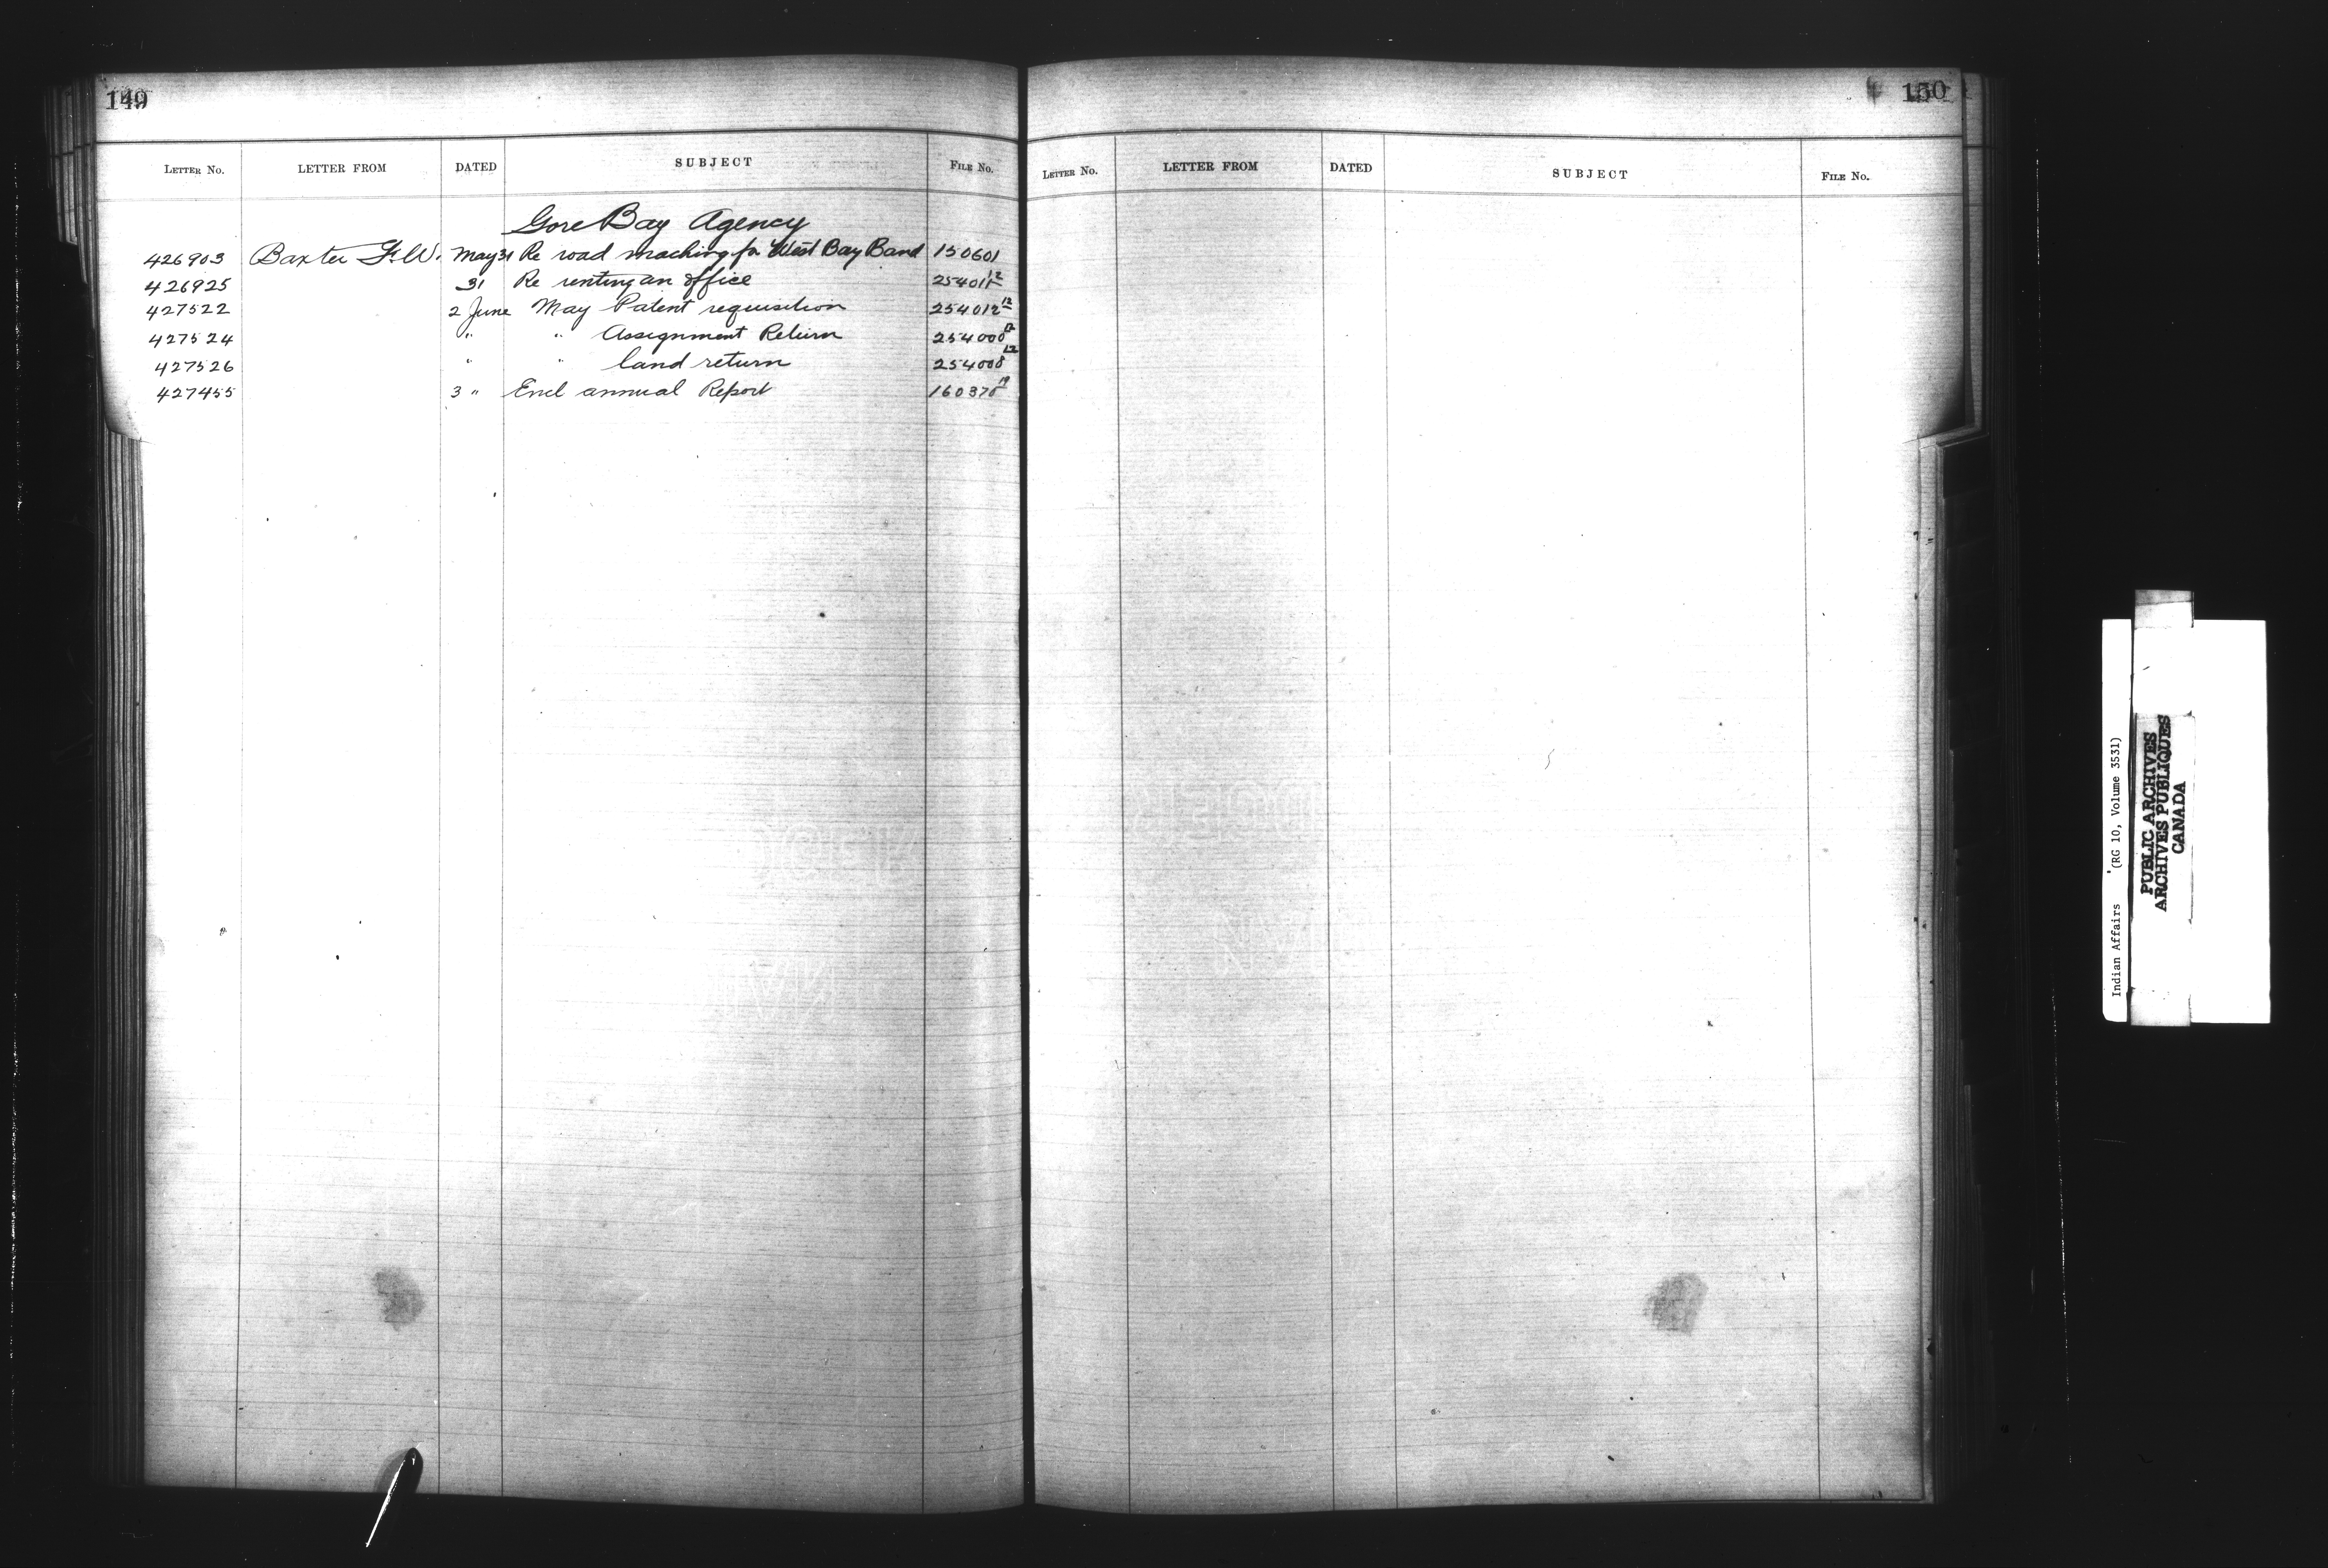 149
LETTER No. LETTER FROM DATED SUBJECT FILE No.
Gore Bay Agency
426903 Baxter F. W. May 31 Re road maching for West Bay Band 150601
426925 31 Re renting an office 254011 12
427522 2 June May Patent requisition 254012 12
427524 " " Assignment Return 254000 12
427526 " " land return 254008 12
427455 3 " Encl annual Report 160370 19
150
LETTER No. LETTER FROM DATED SUBJECT FILE No.
Indian Affairs (RG 10, Volume 3531)
PUBLIC ARCHIVES
ARCHIVES PUBLIQUES
CANADA